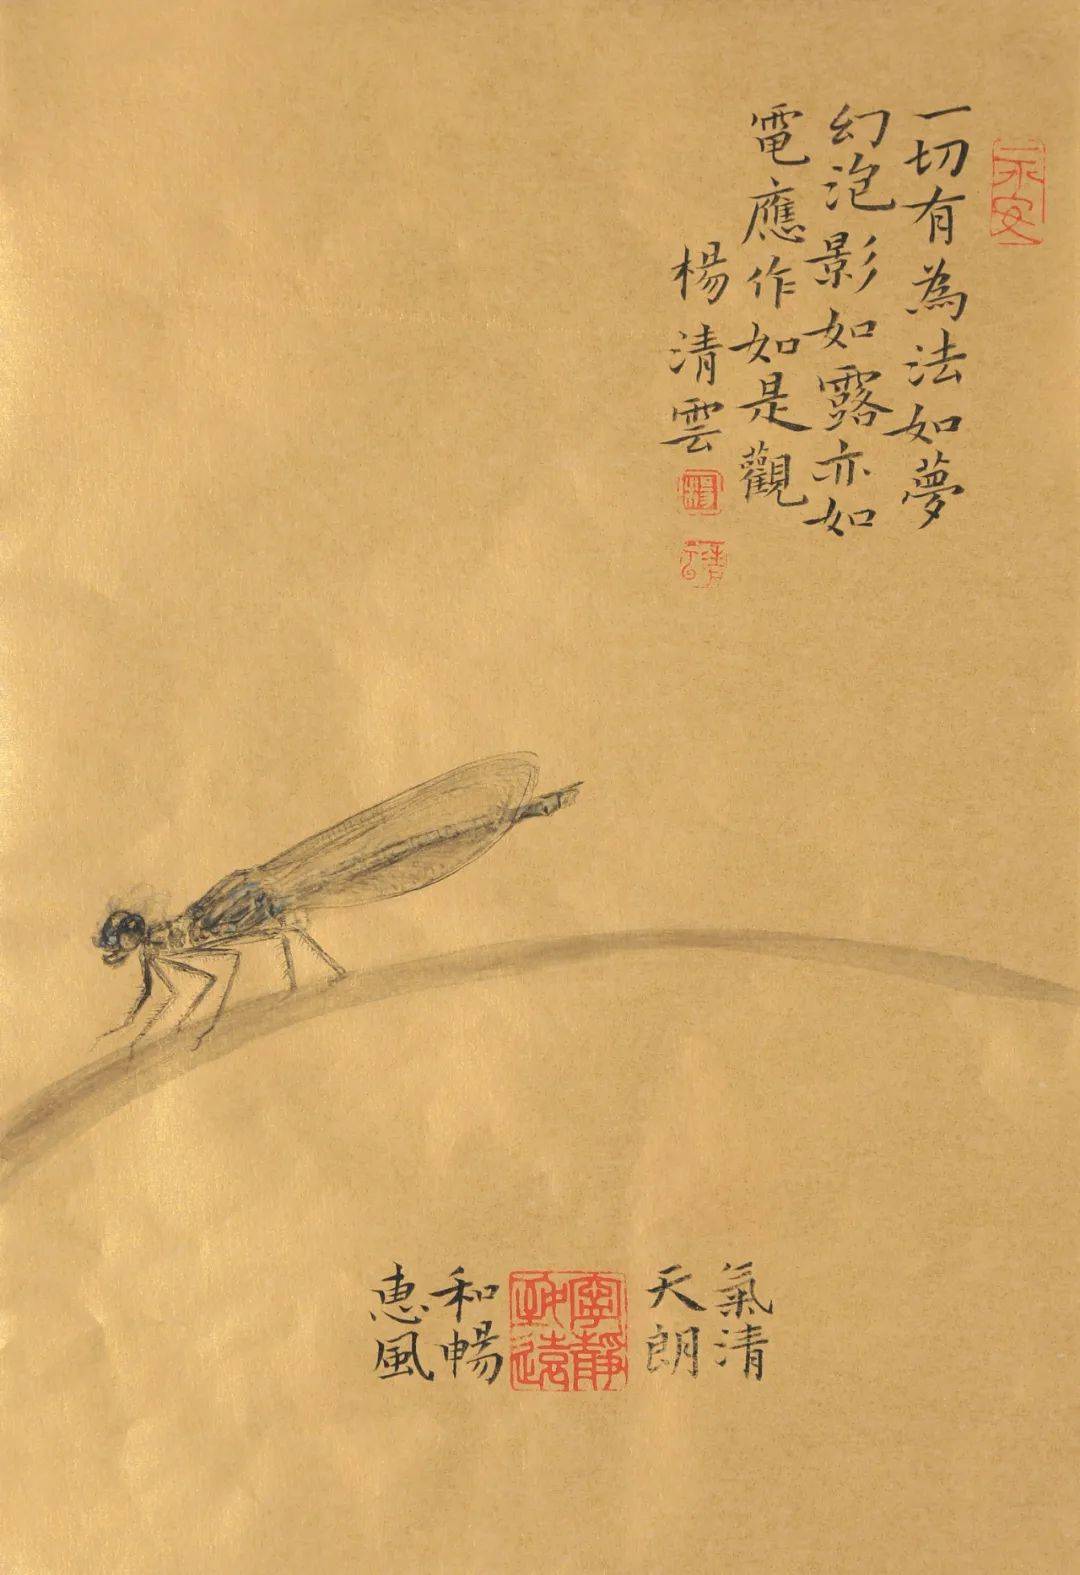 一切有為法如夢
幻泡影如露亦如
電應作如是觀
楊清雲
楊
氣清
天朗
寧靜
致遠
和暢
惠風